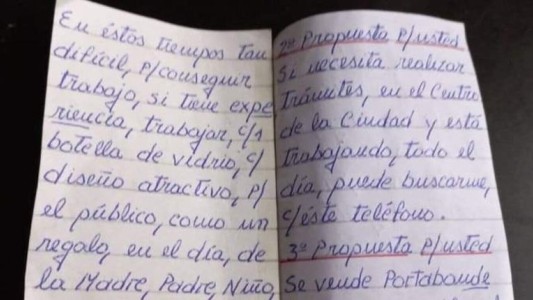 En éstos tiempos tan
difícil, p/conseguir
trabajo, si tiene expe
riencia, trabajar, c/1
botella de vidrio, c/
diseño atractivo, p/
el público, como un
regalo, en el día, de
la Madre, Padre, Niño,
2ª Propuesta p/usted
Si necesita realizar
Trámites, en el Centro
de la Ciudad y está
trabajando, todo el
día, puede buscarme,
c/éste teléfono.
3ª Propuesta p/usted
Se vende Portabande